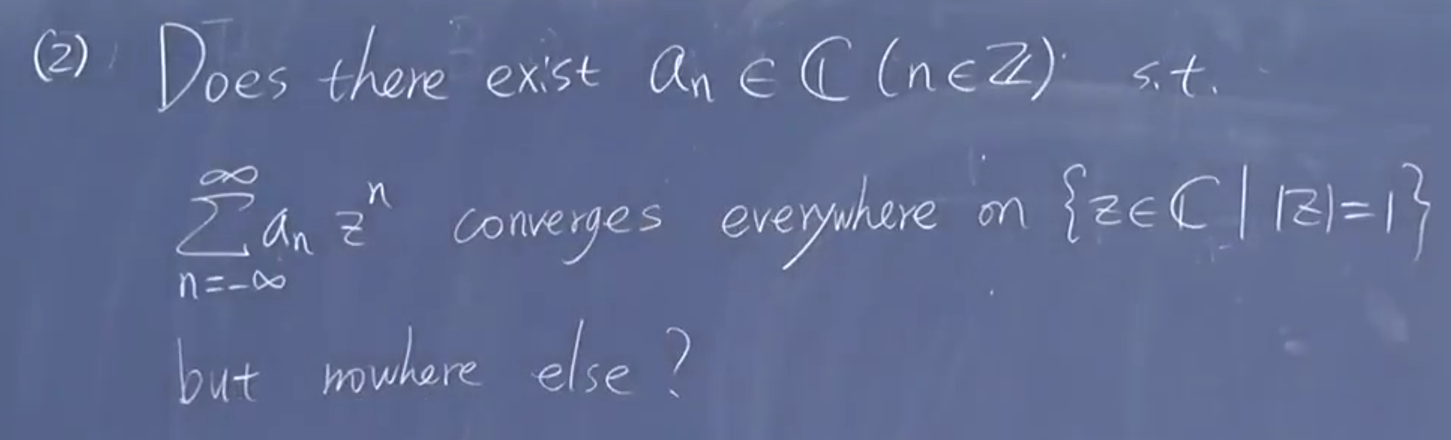 (2) Does there exist aₙ ∈ ℂ (n∈ℤ) s.t.
∑_{n=-∞}^{∞} aₙ zⁿ converges everywhere on {z∈ℂ | |z|=1}
but nowhere else?